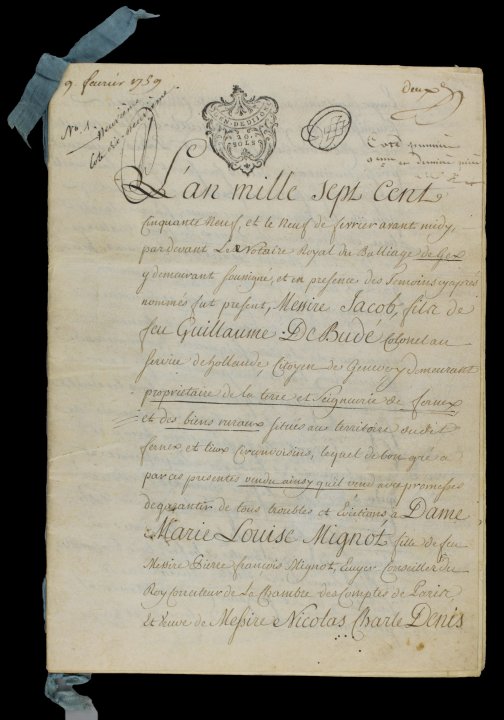 9 fevrier 1759
deux
No. 1.
GEN. DE DIJON
SOLS
Cote premiere
L'an mille sept Cent
Cinquante Neuf, et le Neuf de fevrier avant midy,
pardevant Le Notaire Royal du Balliage de Gex
y demeurant soussigné, et en presence des Temoins cy après
nommés fut present, Messire Jacob, fils de
feu Guillaume De Budé Colonel au
service de hollande, Citoyen de Geneve y demeurant
propriétaire de la terre et Seigneurie de fernex
et des biens ruraux situés au territoire dudit
fernex et lieux circonvoisins, lequel de bon gré a
par ces presentes vendu ainsy quil vend avec promesses
de garantir de tous troubles et Evictions a Dame
Marie Louise Mignot fille de feu
Messire Pierre francois Mignot, Ecuyer Conseiller du
Roy Correcteur de La Chambre des Comptes de Paris
Et Veuve de Messire Nicolas Charle Denis